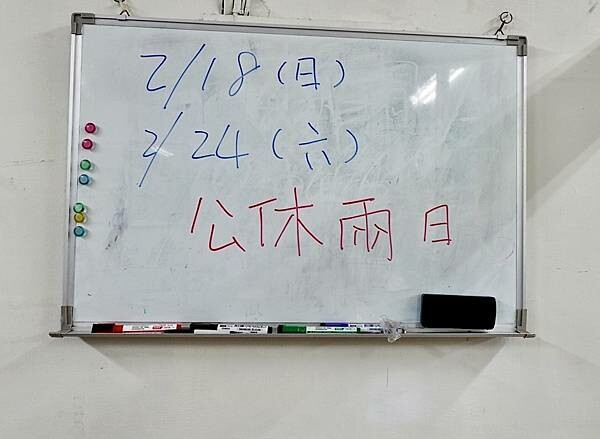 2/18(日)
2/24(六)
公休兩日